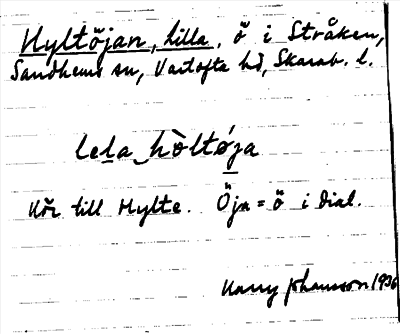 Hyltöjan, lilla, ö i Stråken,
Sandhems sn, Vartofta hd, Skarab. l.
lela hòltǿja
Hör till Hylte. Öja = ö i dial.
Harry Johansson 1930